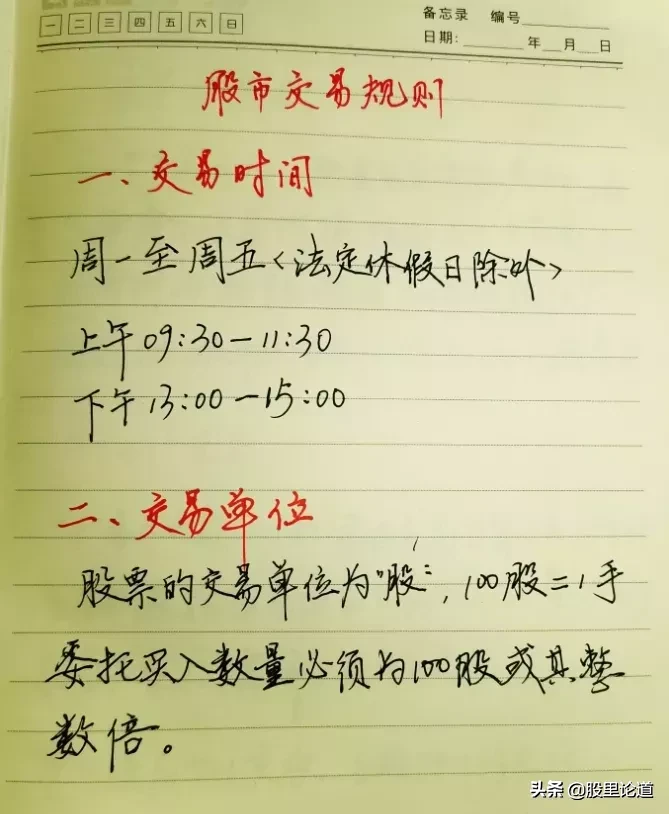 一 二 三 四 五 六 日
备忘录 编号
日期: 年 月 日
股市交易规则
一、交易时间
周一至周五<法定休假日除外>
上午09:30-11:30
下午13:00-15:00
二、交易单位
股票的交易单位为"股",100股=1手
委托买入数量必须为100股或其整
数倍。
头条 @股里论道